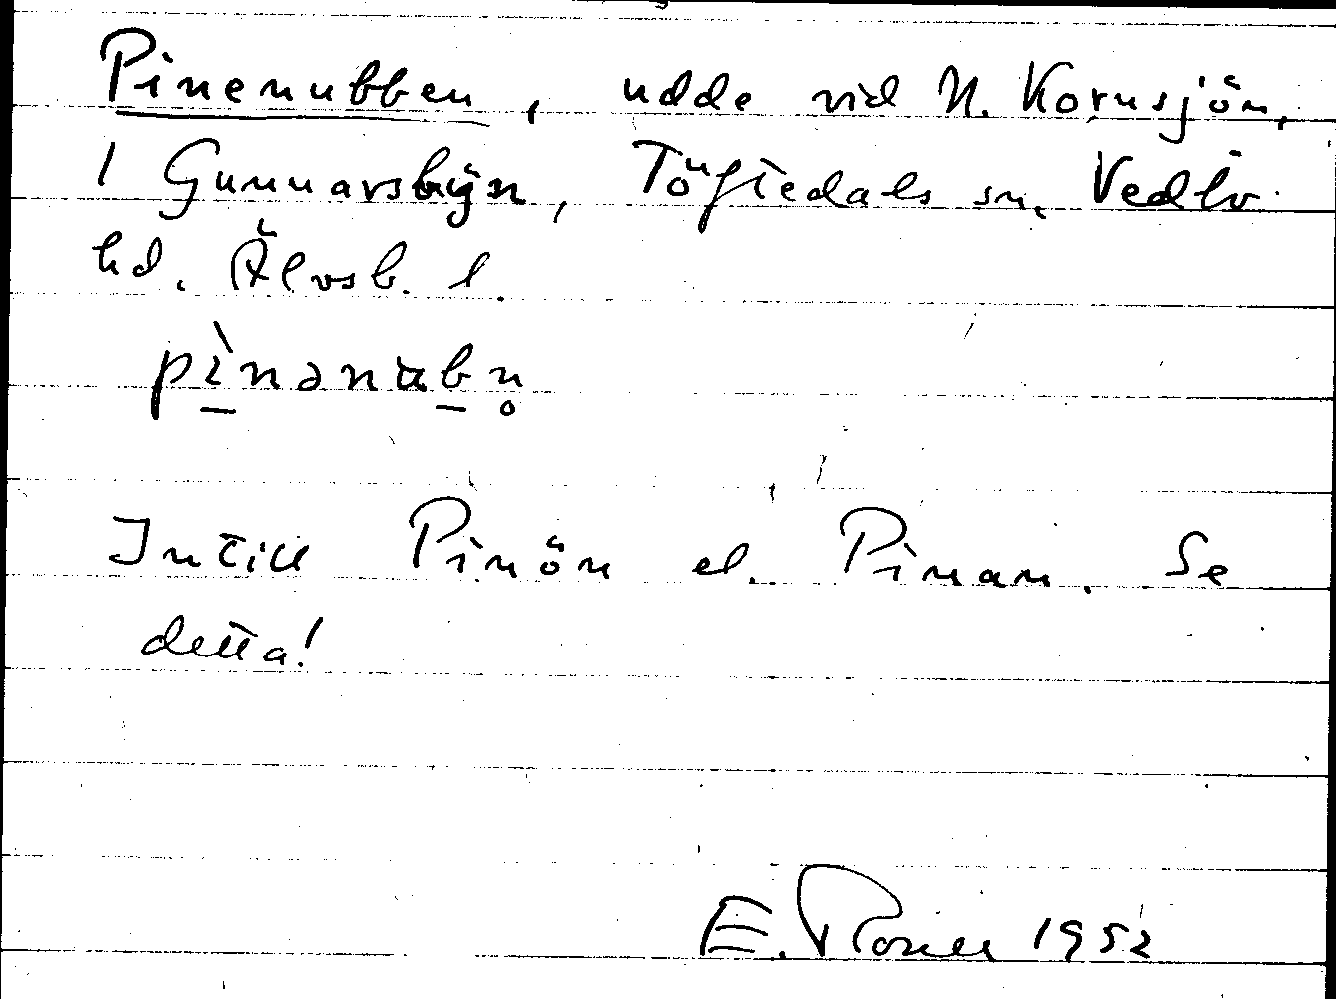 Pinenubben, udde vid N. Kornsjön,
1 Gunnarsbyn, Töftedals sn, Vedbo
hd. Älvsb. l.
pìnənɯbn̥
Intill Pinön el. Pinan. Se
detta!
E. Rosell 1952